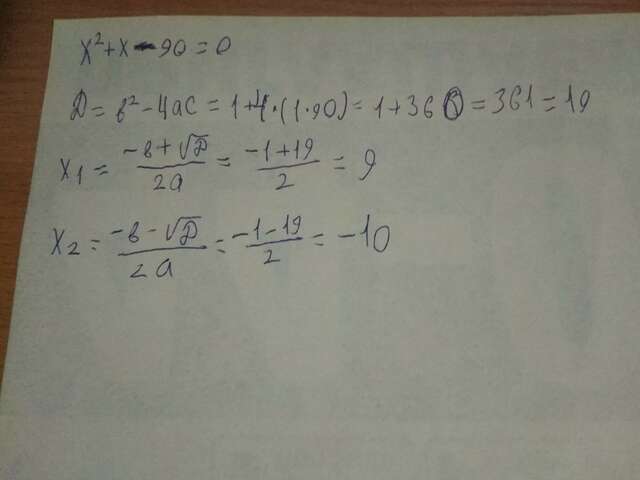 x²+x-90=0
Д=в²-4ac=1+4·(1·90)=1+360=361=19
x₁=(-в+√Д)/2a=(-1+19)/2=9
x₂=(-в-√Д)/2a=(-1-19)/2=-10